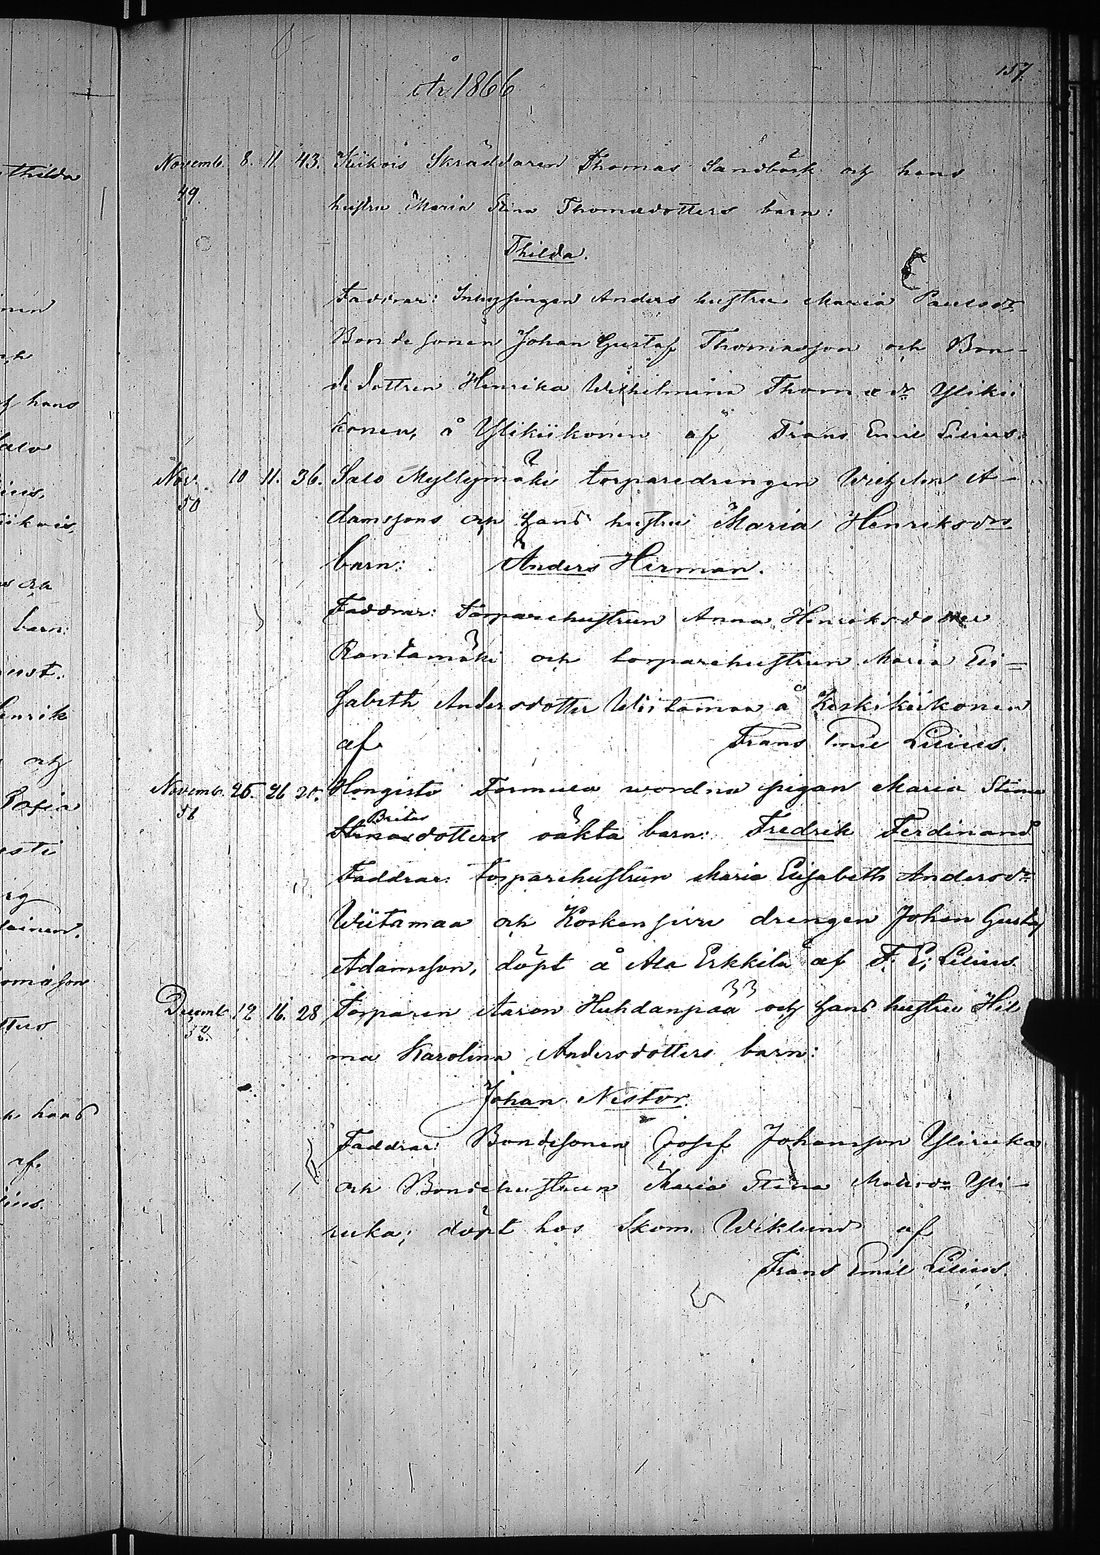 157.
År 1866
Novemb. 8. 11. 43. Kiikois Skräddaren Thomas Sandbäck och hans
49. hustru Maria Stina Thomædotters barn:
Thilda.
Faddrar: Inhysingen Anders hustru Maria Paulsdr
Bondesonen Johan Gustaf Thomasson och Bon-
dedottren Henrika Wilhelmina Thomædr Ylikii
konen, å Ylikiikonen af Frans Emil Lilius.
Nov. 10 11. 36. Salo Myllymäki torparedrengen Wilhelm A-
50 damssons och hans hustru Maria Henriksdrs
barn: Anders Herman.
Faddrar: Torparehustrun Anna Henriksdotter
Rantamäki och torparehustrun Maria Eli-
sabeth Andersdotter Wiitamaa å Keskikiikonen
af Frans Emil Lilius.
Novemb. 25. 26 20. Hongisto Formula wordna pigan Maria Stina
51 Britas
Stinasdotters oäkta barn: Fredrik Ferdinand
Faddrar: torparehustrun Maria Elisabeth Andersdr
Wiitamaa och Koskensivu drengen Johan Gustaf
Adamsson, döpt å Ala Erkkilä af F. E. Lilius
Decemb. 12 16. 28 Torparen Aaron Huhdanpää och hans hustru Hil
52. ma Karolina Andersdotters barn:
Johan Nestor
Faddrar: Bondesonen Josef Johansson Yliruka
och Bondehustrun Maria Stina Yli-
ruka; döpt hos Skom. Wiklund af
Frans Emil Lilius.